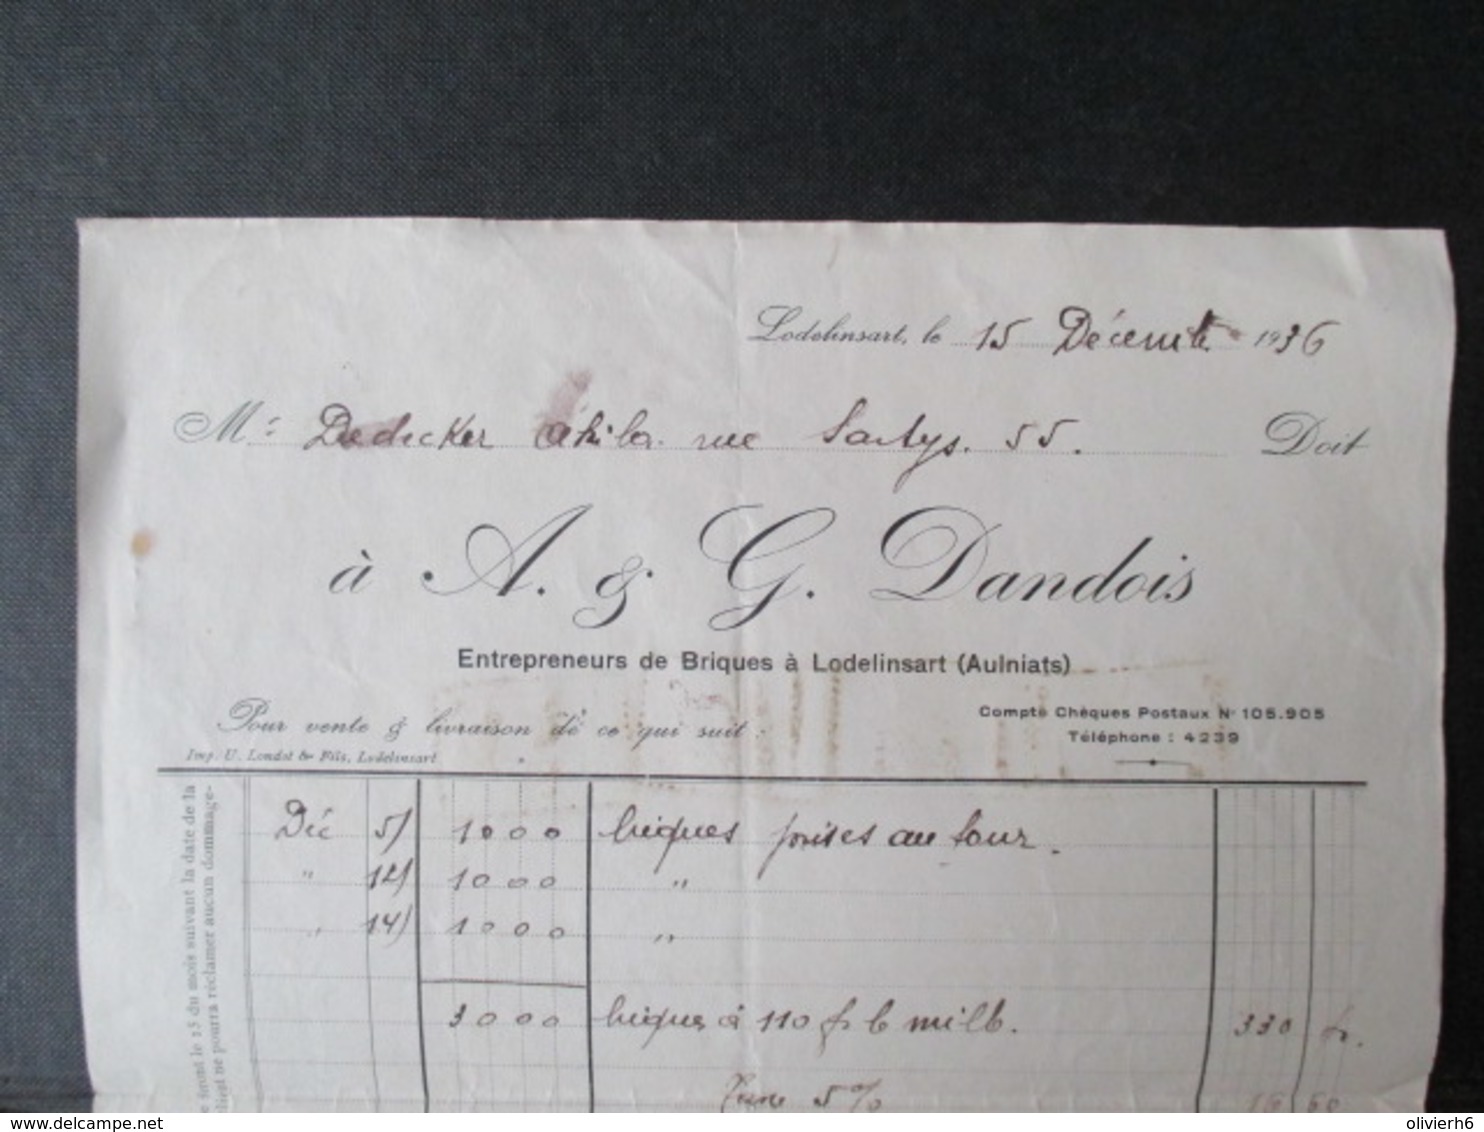 Lodelinsart, le 15 Décembre 1936
Mr Dedecker Akila. rue Sartys. 55. Doit
à A. & G. Dandois
Entrepreneurs de Briques à Lodelinsart (Aulniats)
Pour vente & livraison de ce qui suit :
Compte Chèques Postaux No 105.905
Téléphone : 4239
Imp. U. Londot & Fils, Lodelinsart
Déc 5/ 1000 briques prises au four.
" 12/ 1000 "
" 14/ 1000 "
3000 briques à 110 fr le mille. 330 fr.
5%
le 15 du mois suivant la date de la
ne pourra réclamer aucun dommage-
delcampe.net
olivierh6